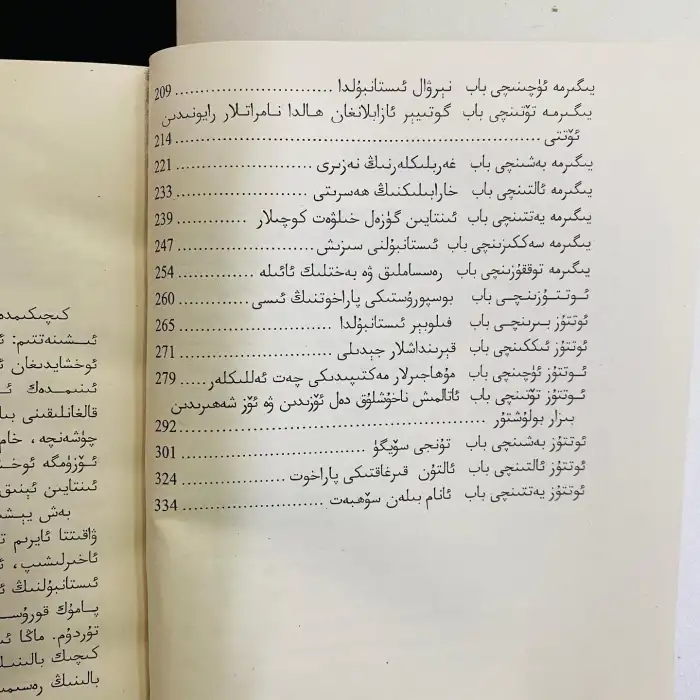 يىگىرمە ئۈچىنچى باب نېرۋال ئىستانبۇلدا ................ 209
يىگىرمە تۆتىنچى باب گوتىيېر ئازابلانغان ھالدا نامراتلار رايونىدىن
ئۆتتى ................ 214
يىگىرمە بەشىنچى باب غەربلىكلەرنىڭ نەزىرى ................ 221
يىگىرمە ئالتىنچى باب خارابىلىكنىڭ ھەسرىتى ................ 233
يىگىرمە يەتتىنچى باب ئىنتايىن گۈزەل خىلۋەت كوچىلار ................ 239
يىگىرمە سەككىزىنچى باب ئىستانبۇلنى سىزىش ................ 247
يىگىرمە توققۇزىنچى باب رەسساملىق ۋە بەختلىك ئائىلە ................ 254
ئوتتۇزىنچى باب بوسپورۇستىكى پاراخوتنىڭ ئىسى ................ 260
ئوتتۇز بىرىنچى باب فىلوبېر ئىستانبۇلدا ................ 265
ئوتتۇز ئىككىنچى باب قېرىنداشلار جېدىلى ................ 271
ئوتتۇز ئۈچىنچى باب مۇھاجىرلار مەكتىپىدىكى چەت ئەللىكلەر ................ 279
ئوتتۇز تۆتىنچى باب ئاتالمىش ناخۇشلۇق دەل ئۆزىدىن ۋە ئۆز شەھىرىدىن
بىزار بولۇشتۇر ................ 292
ئوتتۇز بەشىنچى باب تۇنجى سۆيگۈ ................ 301
ئوتتۇز ئالتىنچى باب ئالتۇن قىرغاقتىكى پاراخوت ................ 324
ئوتتۇز يەتتىنچى باب ئانام بىلەن سۆھبەت ................ 334
كىچىكىمدە
ئىشىنەتتىم:
ئوخشايدىغان
ئىنىمدەك
قالغانلىقىنى
چۈشەنچە، خام
ئۆزۈمگە
ئىنتايىن ئېنىق
بەش يېشى
ۋاقىتتا ئايرىم
ئاخىرلىشىپ،
ئىستانبۇلنىڭ
پامۇك
تۇردۇم. ماڭا
كىچىك
بالىنىڭ